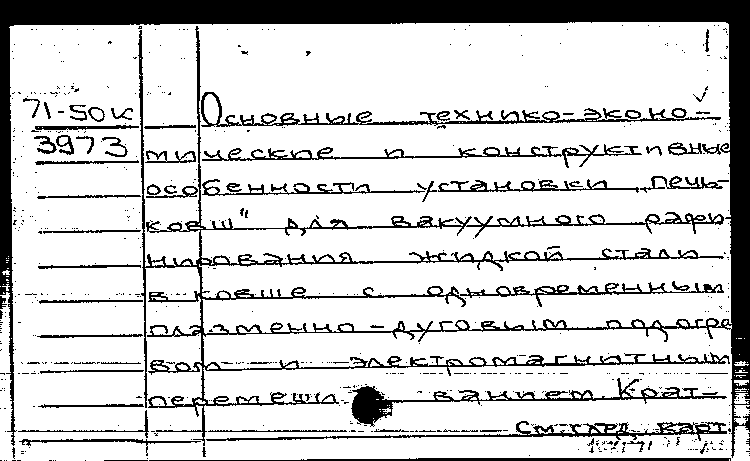 71-50к Основные технико-эконо-
3973 мические и конструктивные
особенности установки „печь-
ковш" для вакуумного рафи-
нирования жидкой стали
в ковше с одновременным
плазменно-дуговым подогре
вом и электромагнитным
перемеши ванием Крат-
См. след. карт.